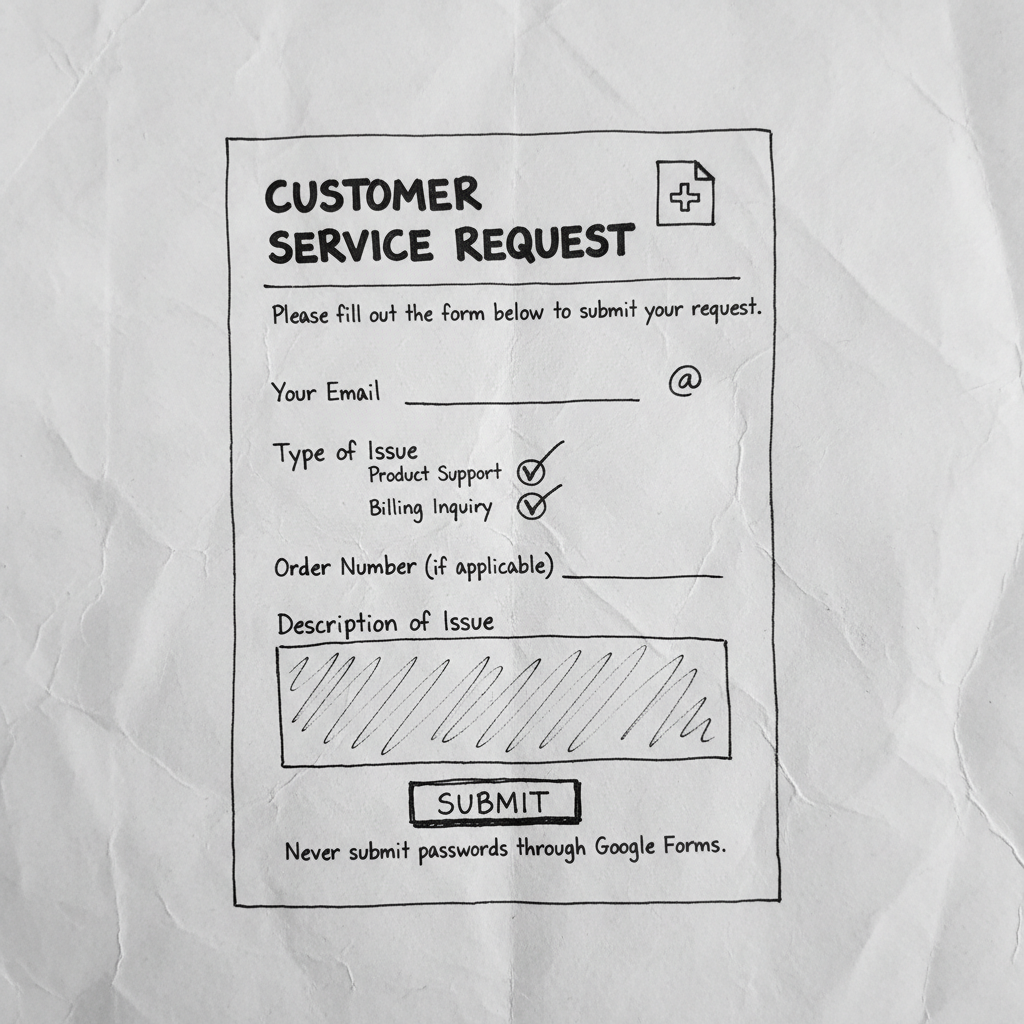 CUSTOMER
SERVICE REQUEST
Please fill out the form below to submit your request.
Your Email @
Type of Issue
Product Support
Billing Inquiry
Order Number (if applicable)
Description of Issue
SUBMIT
Never submit passwords through Google Forms.